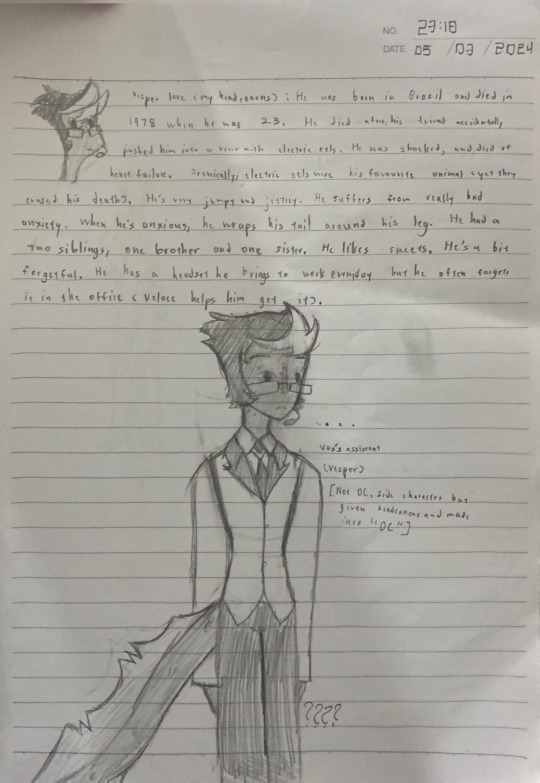 NO. 27:18
DATE 05 / 07 / 2024
Vesper lore (my headcanons) : He was born in Brazil and died in
1978 when he was 23. He died after his friend accidentally
pushed him into a river with electric eels. He was shocked, and died of
heart failure. Ironically, electric eels were his favourite animal (yet they
caused his death). He's very jumpy and jittery. He suffers from really bad
anxiety. When he's anxious, he wraps his tail around his leg. He had a
two siblings, one brother and one sister. He likes sweets. He's a bit
forgetful. He has a headset he brings to work everyday but he often forgets
it in the office (Veloce helps him get it).
....
Vox's assistant
(Vesper)
[Not OC, side character but
given headcanons and made
into "OC"]
????